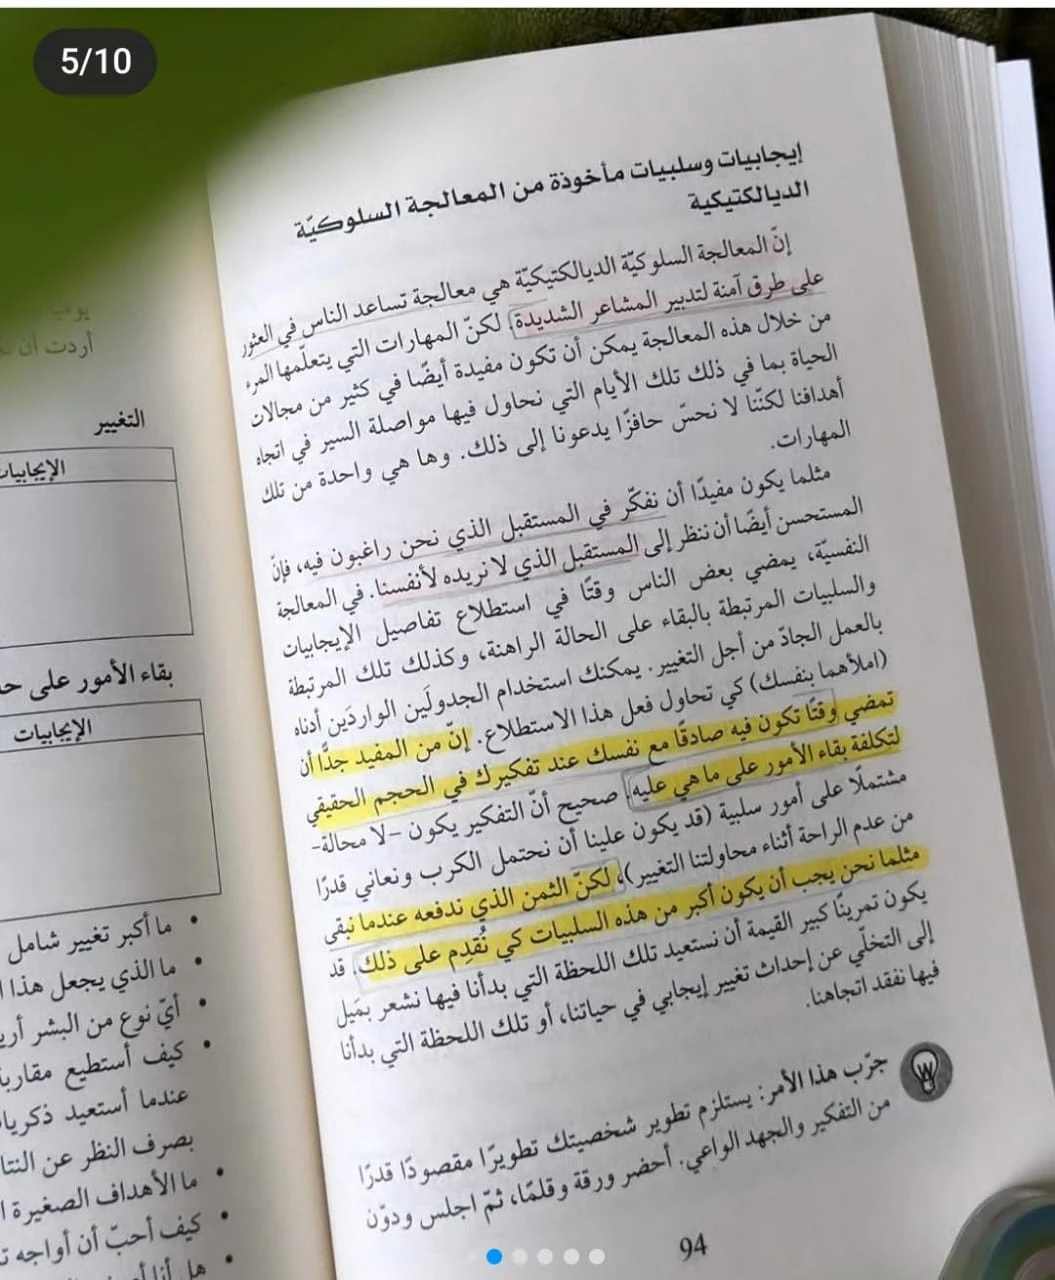 5/10
إيجابيات وسلبيات مأخوذة من المعالجة السلوكيّة
الديالكتيكية
إنّ المعالجة السلوكيّة الديالكتيكيّة هي معالجة تساعد الناس في العثور
على طرق آمنة لتدبير المشاعر الشديدة. لكنّ المهارات التي يتعلّمها المرء
من خلال هذه المعالجة يمكن أن تكون مفيدة أيضًا في كثير من مجالات
الحياة بما في ذلك تلك الأيام التي نحاول فيها مواصلة السير في اتجاه
أهدافنا لكنّنا لا نحسّ حافزًا يدعونا إلى ذلك. وها هي واحدة من تلك
المهارات.
مثلما يكون مفيدًا أن نفكّر في المستقبل الذي نحن راغبون فيه، فإنّ
المستحسن أيضًا أن ننظر إلى المستقبل الذي لا نريده لأنفسنا. في المعالجة
النفسيّة، يمضي بعض الناس وقتًا في استطلاع تفاصيل الإيجابيات
والسلبيات المرتبطة بالبقاء على الحالة الراهنة، وكذلك تلك المرتبطة
بالعمل الجادّ من أجل التغيير. يمكنك استخدام الجدولَين الواردَين أدناه
(املأهما بنفسك) كي تحاول فعل هذا الاستطلاع. إنّ من المفيد جدًّا أن
تمضي وقتًا تكون فيه صادقًا مع نفسك عند تفكيرك في الحجم الحقيقي
لتكلفة بقاء الأمور على ما هي عليه. صحيح أنّ التفكير يكون -لا محالة-
مشتملًا على أمور سلبية (قد يكون علينا أن نحتمل الكرب ونعاني قدرًا
من عدم الراحة أثناء محاولتنا التغيير)، لكنّ الثمن الذي ندفعه عندما نبقى
مثلما نحن يجب أن يكون أكبر من هذه السلبيات كي نُقدِم على ذلك. قد
يكون تمرينًا كبير القيمة أن نستعيد تلك اللحظة التي بدأنا فيها نشعر بمَيل
إلى التخلّي عن إحداث تغيير إيجابي في حياتنا، أو تلك اللحظة التي بدأنا
فيها نفقد اتجاهنا.
جرّب هذا الأمر: يستلزم تطوير شخصيتك تطويرًا مقصودًا قدرًا
من التفكير والجهد الواعي. أحضر ورقة وقلمًا، ثمّ اجلس ودوّن
94
أردت أن
التغيير
الإيجابيات
بقاء الأمور على
الإيجابيات
• ما أكبر تغيير شامل
• ما الذي يجعل هذا
• أيّ نوع من البشر
• كيف أستطيع
عندما أستعيد
بصرف النظر عن
• ما الأهداف الصغيرة
• كيف أحبّ أن أواجه
• هل أنا